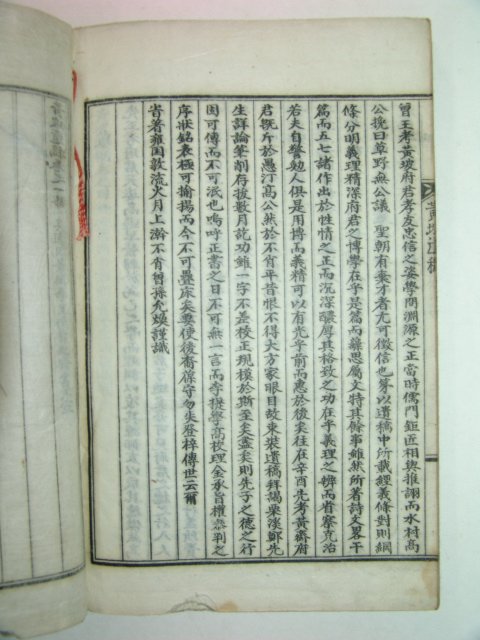 曾王考黃坡府君孝友忠信之姿學問淵源之正當時儒門鉅匠相與推詡而水村高
公挽曰草野無公議 聖朝有棄才者尤可徵信也篆以遺稿中所載經義條對則綱
條分明義理精深府君之博學在乎是篇而藻思屬文特其餘事雖然所著詩文畧干
篇而五七諸作出於性情之正而沉深醲厚其格致之功在乎義理之辨而省察克治
若夫自警勉人俱是用博而義精可以有光乎前而惠於後矣往在辛酉先考黃齋府
君旣斤於愚汀高公然於不肖平昔恨不得大方家眼目故束裝遺稿拜謁栗溪鄭先
生詳論筆削府扳數月訖功雖一字不差校正規模於斯至矣盡矣則先子之德之行
固可傳而不可泯也嗚呼正書之日不可無一言而李提學高校理金承旨權叅判之
序狀銘表極可揄揚而今不可疊床矣要使後裔葆守勿失登梓傳世云爾
旹著雍困敦流火月上澣不肖曾孫允煥謹識
黃坡遺稿